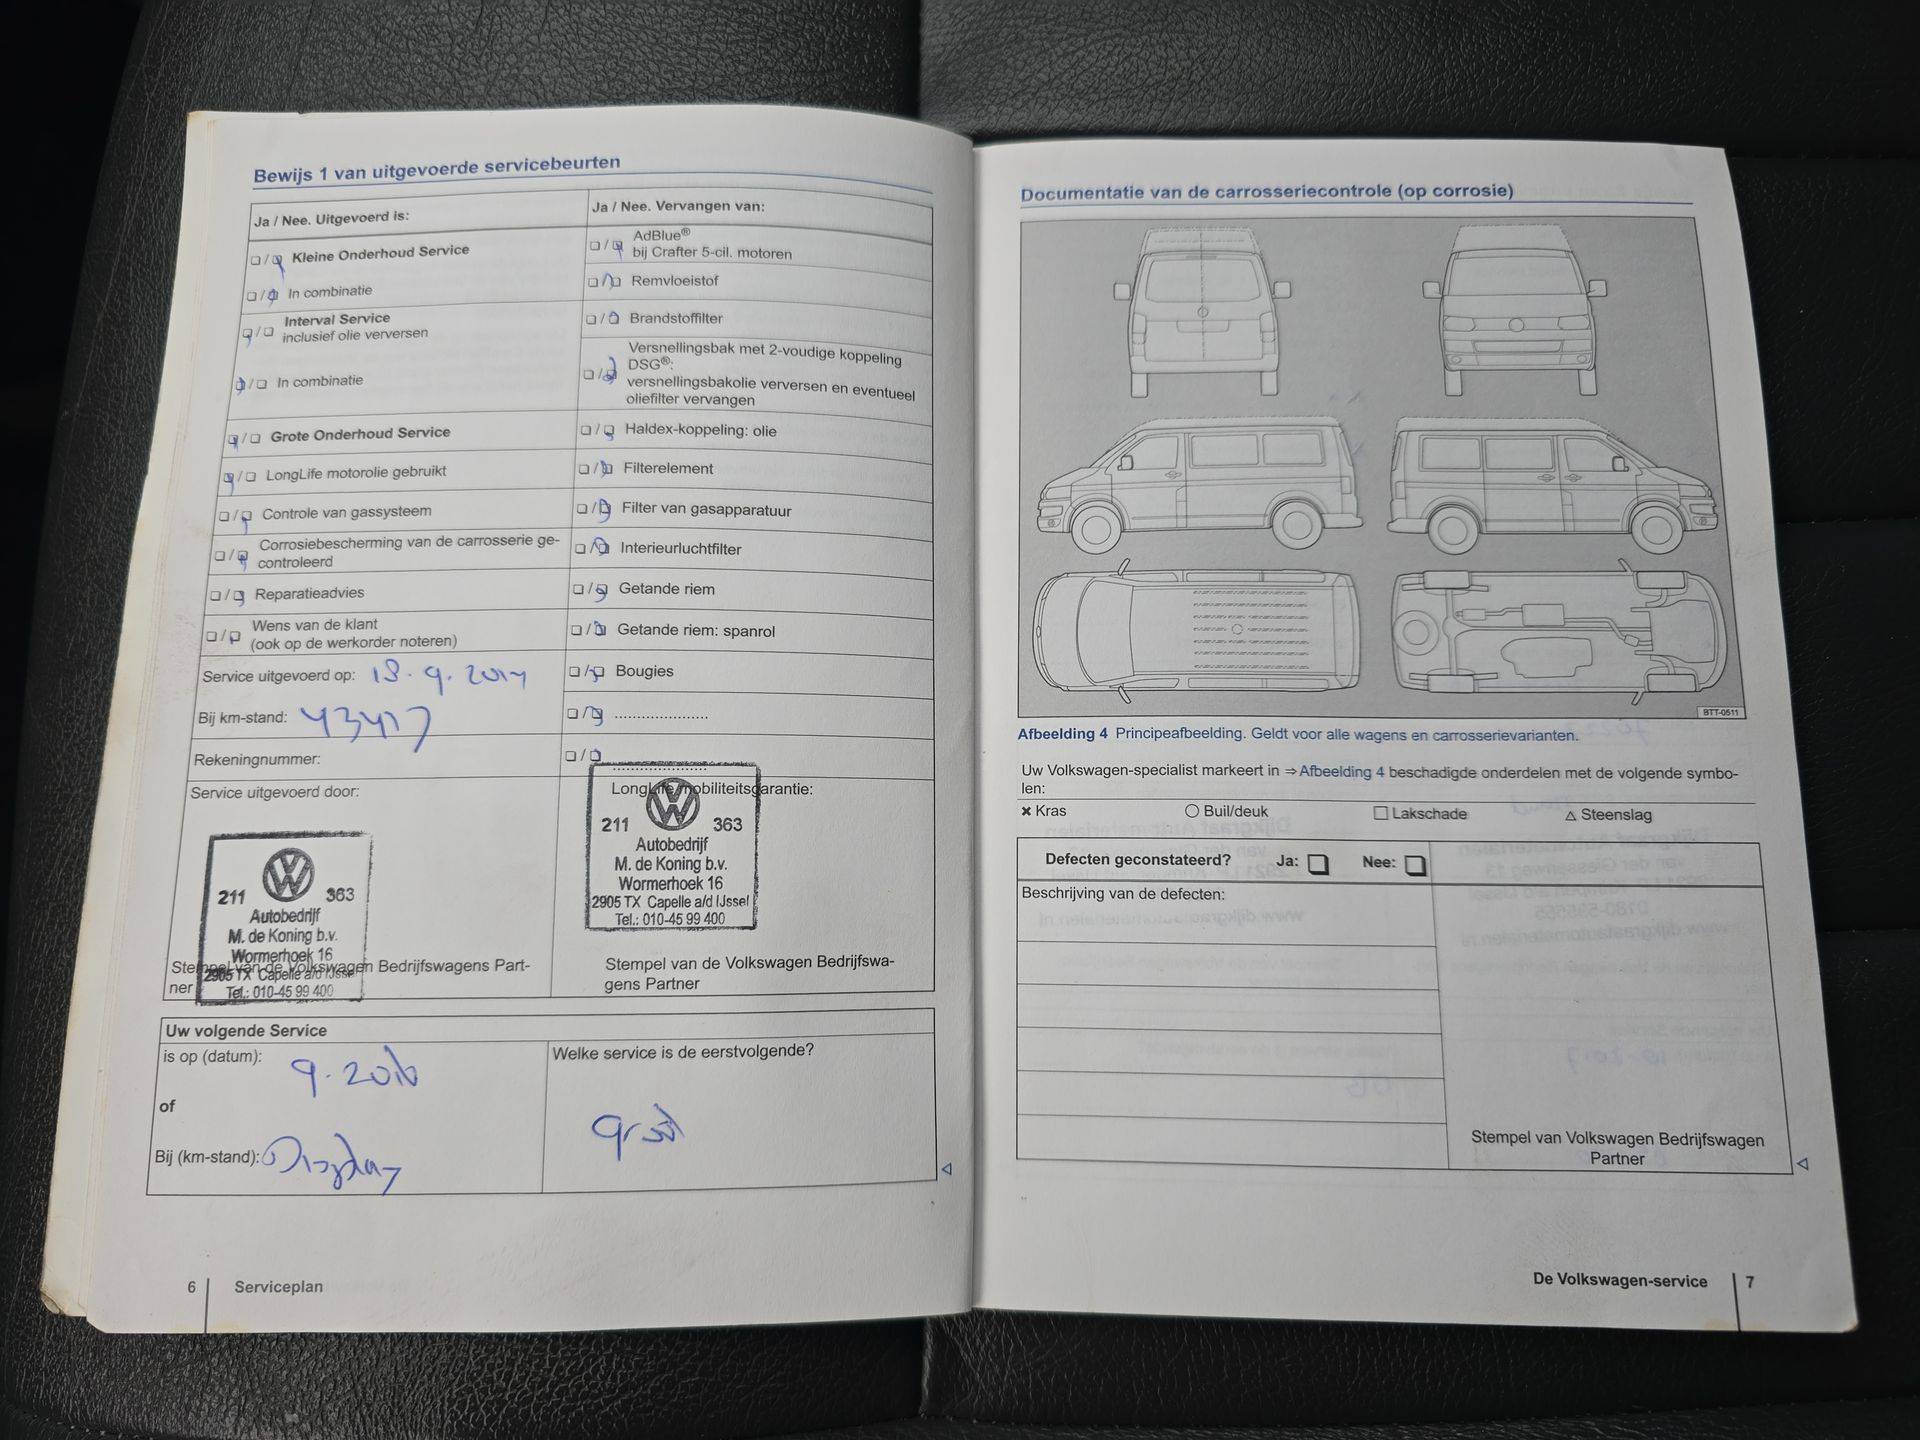 Bewijs 1 van uitgevoerde servicebeurten
Ja / Nee. Uitgevoerd is:
Kleine Onderhoud Service
In combinatie
Interval Service
inclusief olie verversen
In combinatie
Grote Onderhoud Service
LongLife motorolie gebruikt
Controle van gassysteem
Corrosiebescherming van de carrosserie ge-
controleerd
Reparatieadvies
Wens van de klant
(ook op de werkorder noteren)
Service uitgevoerd op:
Bij km-stand: 43417
Rekeningnummer:
Service uitgevoerd door:
211 363
Autobedrijf
M. de Koning b.v.
Wormerhoek 16
2905 TX Capelle a/d IJssel
Tel.: 010-45 99 400
Stempel van de Volkswagen Bedrijfswagens Part-
ner
Ja / Nee. Vervangen van:
AdBlue®
bij Crafter 5-cil. motoren
Remvloeistof
Brandstoffilter
Versnellingsbak met 2-voudige koppeling
DSG®:
versnellingsbakolie verversen en eventueel
oliefilter vervangen
Haldex-koppeling: olie
Filterelement
Filter van gasapparatuur
Interieurluchtfilter
Getande riem
Getande riem: spanrol
Bougies
LongLife/mobiliteitsgarantie:
211 363
Autobedrijf
M. de Koning b.v.
Wormerhoek 16
2905 TX Capelle a/d IJssel
Tel.: 010-45 99 400
Stempel van de Volkswagen Bedrijfswa-
gens Partner
Uw volgende Service
is op (datum): 9.2016
of
Bij (km-stand): Display
Welke service is de eerstvolgende?
groot
6 Serviceplan
Documentatie van de carrosseriecontrole (op corrosie)
BTT-0511
Afbeelding 4 Principeafbeelding. Geldt voor alle wagens en carrosserievarianten.
Uw Volkswagen-specialist markeert in ⇒ Afbeelding 4 beschadigde onderdelen met de volgende symbo-
len:
✖ Kras ○ Buil/deuk □ Lakschade △ Steenslag
Defecten geconstateerd? Ja: Nee:
Beschrijving van de defecten:
Stempel van Volkswagen Bedrijfswagen
Partner
De Volkswagen-service 7